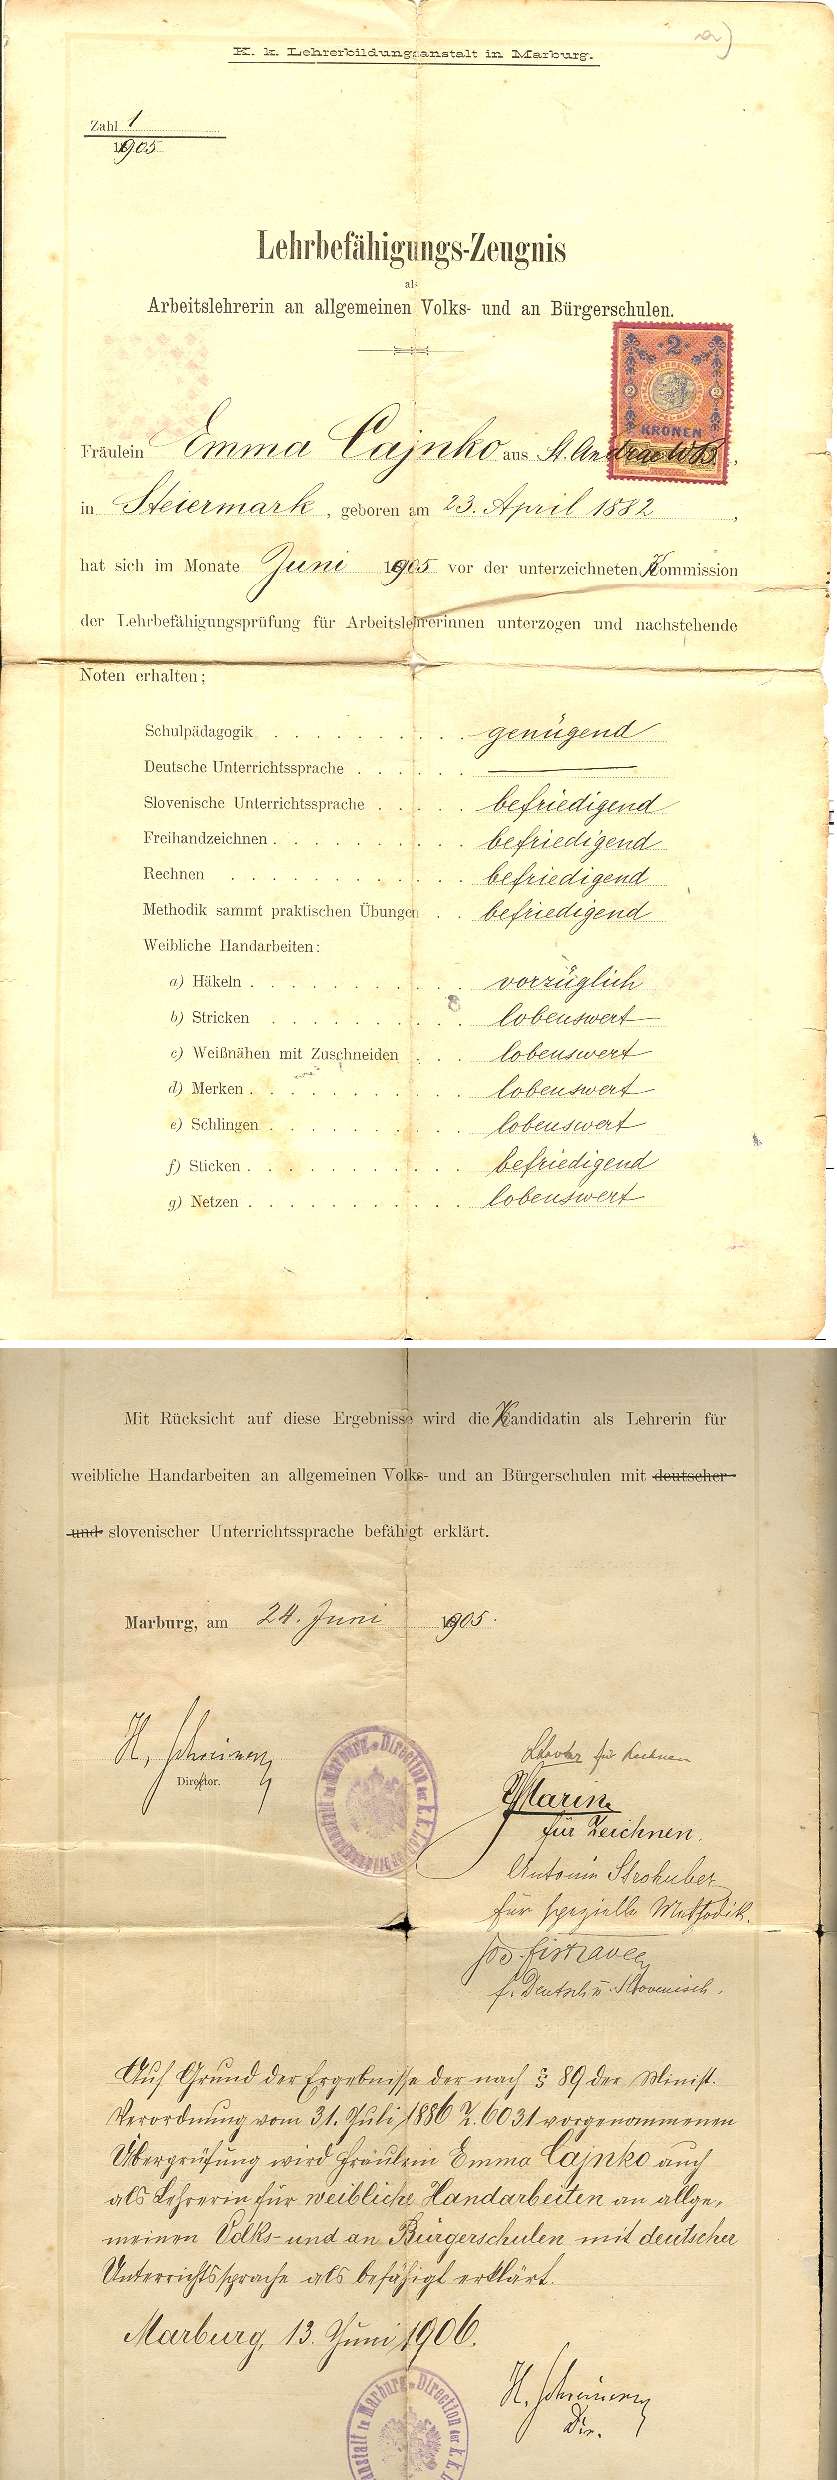 a)
K. k. Lehrerbildungsanstalt in Marburg.
Zahl 1
1905
Lehrbefähigungs-Zeugnis
als
Arbeitslehrerin an allgemeinen Volks- und an Bürgerschulen.
2
2 2
KRONEN
Fräulein Emma Cajnko aus St. Andrae W.B.,
in Steiermark, geboren am 23. April 1882,
hat sich im Monate Juni 1905 vor der unterzeichneten Kommission
der Lehrbefähigungsprüfung für Arbeitslehrerinnen unterzogen und nachstehende
Noten erhalten:
Schulpädagogik . . . . . . . . . . genügend
Deutsche Unterrichtssprache . . . . . . ———
Slovenische Unterrichtssprache . . . . . befriedigend
Freihandzeichnen . . . . . . . . . . befriedigend
Rechnen . . . . . . . . . . . . befriedigend
Methodik sammt praktischen Übungen . . befriedigend
Weibliche Handarbeiten:
a) Häkeln . . . . . . . . . . . vorzüglich
b) Stricken . . . . . . . . . . lobenswert
c) Weißnähen mit Zuschneiden . . . lobenswert
d) Merken . . . . . . . . . . . lobenswert
e) Schlingen . . . . . . . . . . lobenswert
f) Sticken . . . . . . . . . . . befriedigend
g) Netzen . . . . . . . . . . . lobenswert
Mit Rücksicht auf diese Ergebnisse wird die Kandidatin als Lehrerin für
weibliche Handarbeiten an allgemeinen Volks- und an Bürgerschulen mit deutscher
und slovenischer Unterrichtssprache befähigt erklärt.
Marburg, am 24. Juni 1905.
H. Schreiner
Direktor.
für Rechnen
Marin
für Zeichnen.
Antonia Strohuber
für spezielle Methodik.
f. Deutsch u. Slovenisch.
Direction der K.K. in Marburg
Auf Grund der Ergebnisse der nach § 89 der Minist.
Verordnung vom 31. Juli 1886 Z. 6031 vorgenommenen
Überprüfung wird Fräulein Emma Cajnko auch
als Lehrerin für weibliche Handarbeiten an allge-
meinen Volks- und an Bürgerschulen mit deutscher
Unterrichtssprache als befähigt erklärt.
Marburg, 13. Juni 1906.
H. Schreiner
Dir.
anstalt in Marburg Direction der K.K.